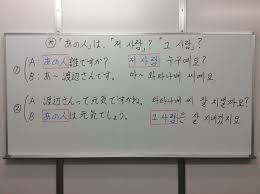 ※「あの人」は、「저 사람」?「그 사람」?
① A: あの人誰ですか? 저 사람 누구예요?
B: あ〜渡辺さんです。 아〜 와타나베 씨예요
② A: 渡辺さんって元気ですかね。 와타나베 씨 잘 지낼까요?
B: あの人は元気でしょう。 그 사람은 잘 지내겠지요